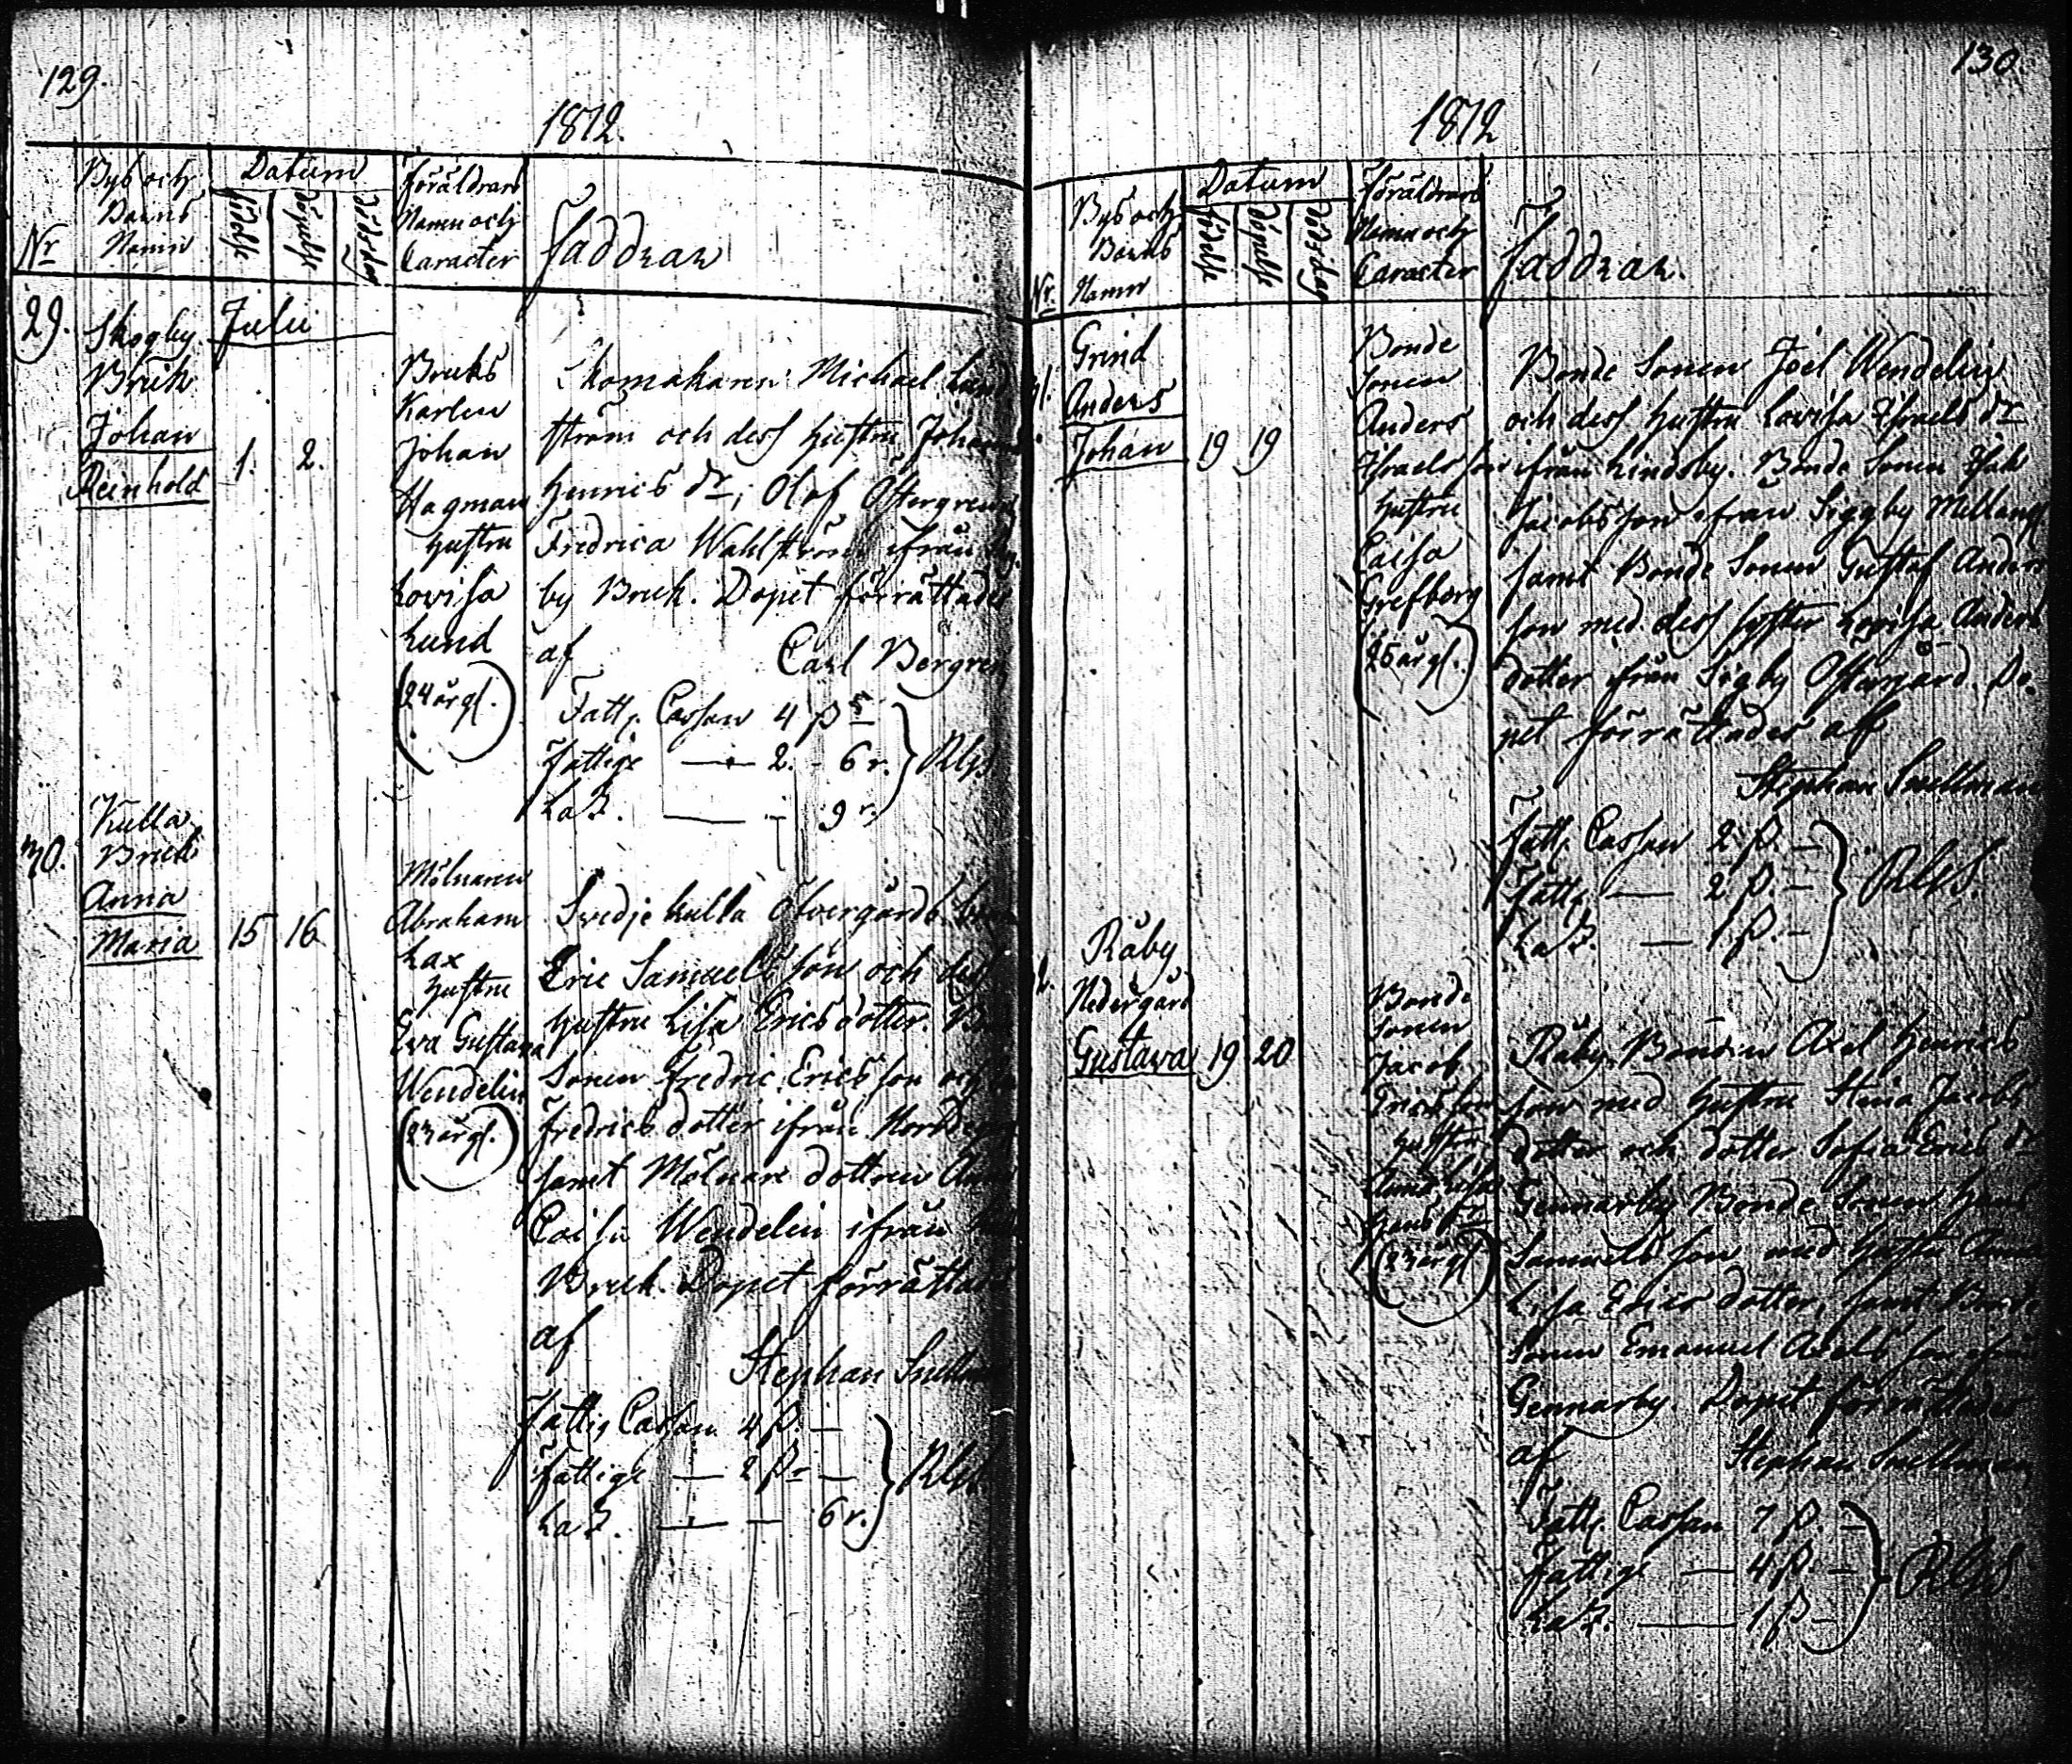 129.
1812.
Nr
Bys och
Barns
Namn
Datum
födelse
döpelse
dödsdag
föräldrars
Namn och
Caracter
Faddrar
29.
Skogby
Bruk
Johan
Reinhold
Julii
1. 2.
Bruks
Karlen
Johan
Hagman
hustru
Lovisa
Lund
(24 år gl.)
Skomakaren Michael Lund
ström och dess hustru
Henrics dr, Olof Östergren
Fredrica Wahlström ifrån
by Bruk. Dopet förrättades
af Carl Bergren
Fatt. Cassan 4 β
fattige — 2. - 6 r.
9 r.
30.
Kulla
Bruk
Anna
Maria
15 16
Mölnaren
Abraham
Lax
hustru
Eva Gustava
Wendelin
(23 år gl.)
Svedjekulla Öfvergårds
Eric Samuels son och dess
hustru Lisa Ericsdotter.
Sonen Fredric Ericsson och
Fredrics dotter ifrån
samt Mölnare dottren
Caisa Wendelin ifrån
Bruk. Dopet förrättades
af
Stephan Snellman
Fattig Cassan 4 β. —
fattige — 2 β — —
— — 6 r.
130.
1812
Nr.
Bys och
Barns
Namn
Datum
födelse
döpelse
dödsdag
föräldrars
Namn och
Caracter
Faddrar.
Grind
Anders
Johan 19 19
Bonde
Sonen
Anders
Israels son
hustru
Caisa
Grefberg
(26 år gl.)
Bonde Sonen Joel Wendelin
och dess hustru Lovisa Israels dr
ifrån Lindsby. Bonde Sonen Isak
Jacobsson ifrån Siggby Mellang
samt Bonde Sonen Gustaf Anders
son med dess syster Lovisa Anders
dotter ifrån Sigby Östergård. Do-
pet förrättades af
Stephan Snellman
Fatt. Cassan 2 β. —
Fatt. — 2 β —
— 1 β. —
Råby
Nedergård
Gustava 19 20
Bonde
Sonen
Jacob
Ericsson
hustru
Anna Lisa
Hans dr
(23 år gl)
Råby Bonden Axel Henrics
son med hustru Stina Jacobs
dotter och dotter Sofia Erics dr
Gennarby Bonde Sonen Hans
Samuels son med hustru Anna
Lisa Erics dotter, samt Bonde
Sonen Emanuel Axels son ifrån
Gennarby. Dopet förrättades
af Stephan Snellman
Fatt. Cassan 7 β. —
Fattige — 4 β. —
— 1 β —